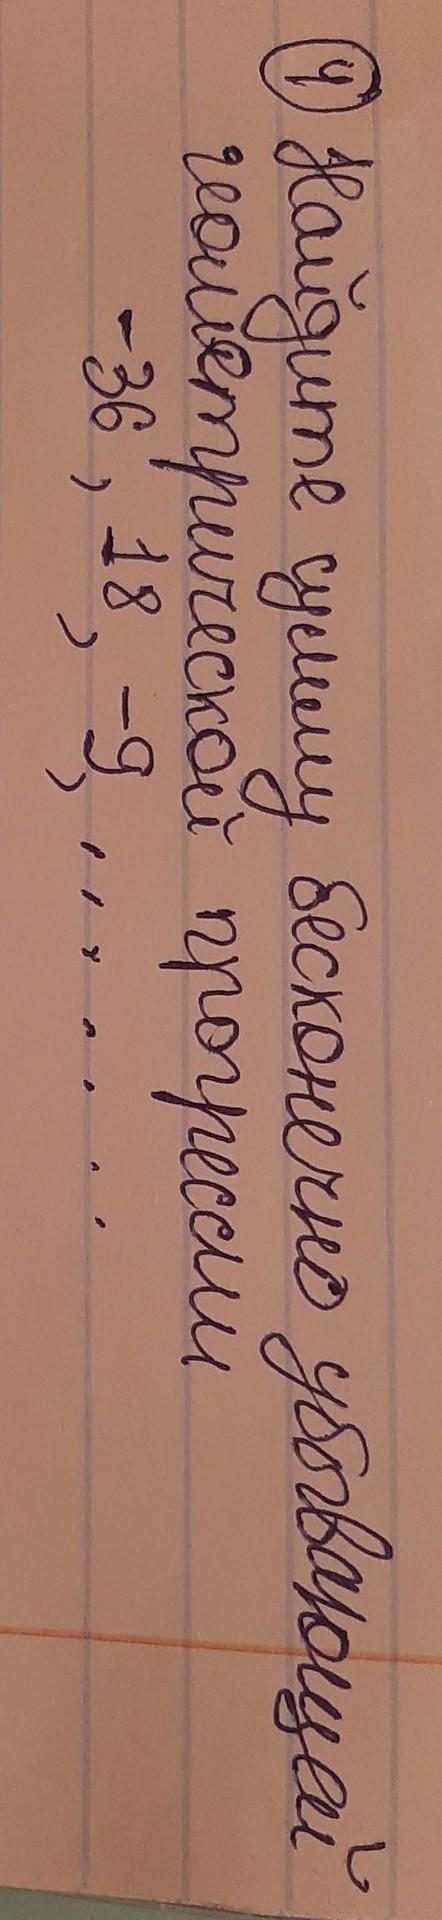 ④ Найдите сумму бесконечно убывающей
геометрической прогрессии
-36, 18, -9, .......